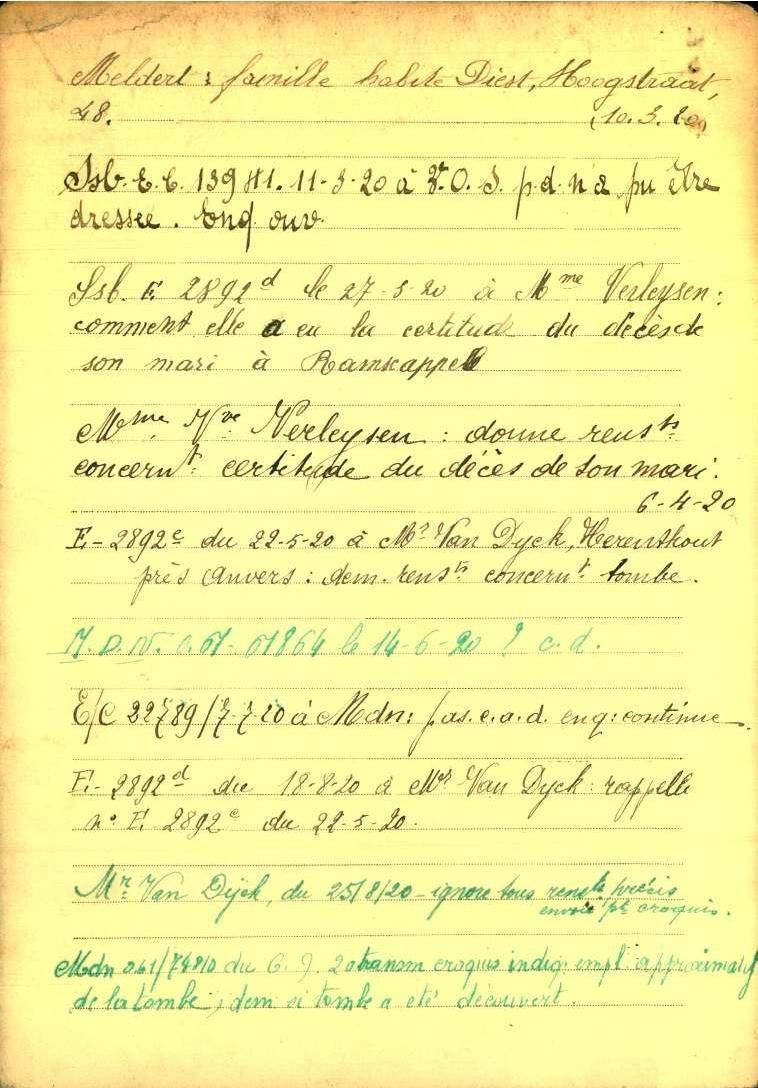 Meldert : famille habite Diest, Hoogstraat,
48. (10.3.20)
Ssb. E.C. 139 H1. 11-3-20 à O. J. p.d. n'a pu être
dressée. Enq ouv.
Ssb. E. 2892d le 27-5-20 à Mme Verleysen :
comment elle a eu la certitude du décès de
son mari à Ramscappelle
Mme Vve Verleysen : donne rensts
concernt certitude du décès de son mari.
6-4-20
E- 2892c du 22-5-20 à Mr Van Dyck, Herenthout
près Anvers : dem. rensts concernt tombe.
M.D.N. 061- 61864 le 14-6-20 ? c. d.
E/C 22789/7-7-20 à Mdn : p.as.c.a.d. enq: continue.
E.- 2892d du 18-8-20 à Mr Van Dyck : rappelle
n° E. 2892c du 22-5-20.
Mr Van Dijck, du 25/8/20 - ignore tous rensts précis
envoie pt croquis.
Mdn 061/74810 du 6. 9. 20 transm croquis indiq. empl. approximatif
de la tombe ; dem si tombe a été découvert.